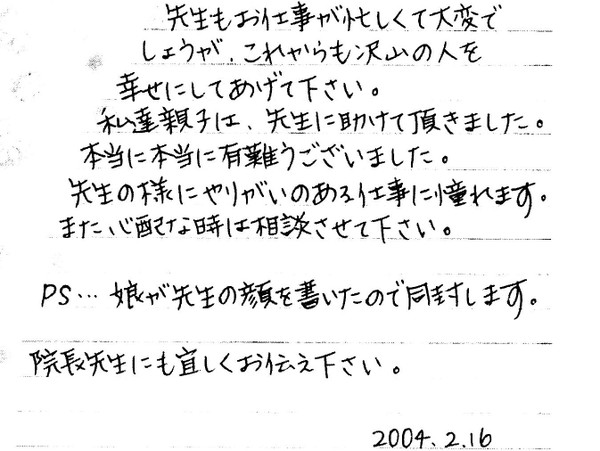 先生もお仕事が忙しくて大変で
しょうが、これからも沢山の人を
幸せにしてあげて下さい。
私達親子は、先生に助けて頂きました。
本当に本当に有難うございました。
先生の様にやりがいのある仕事に憧れます。
また心配な時は相談させて下さい。
PS… 娘が先生の顔を書いたので同封します。
院長先生にも宜しくお伝え下さい。
2004.2.16